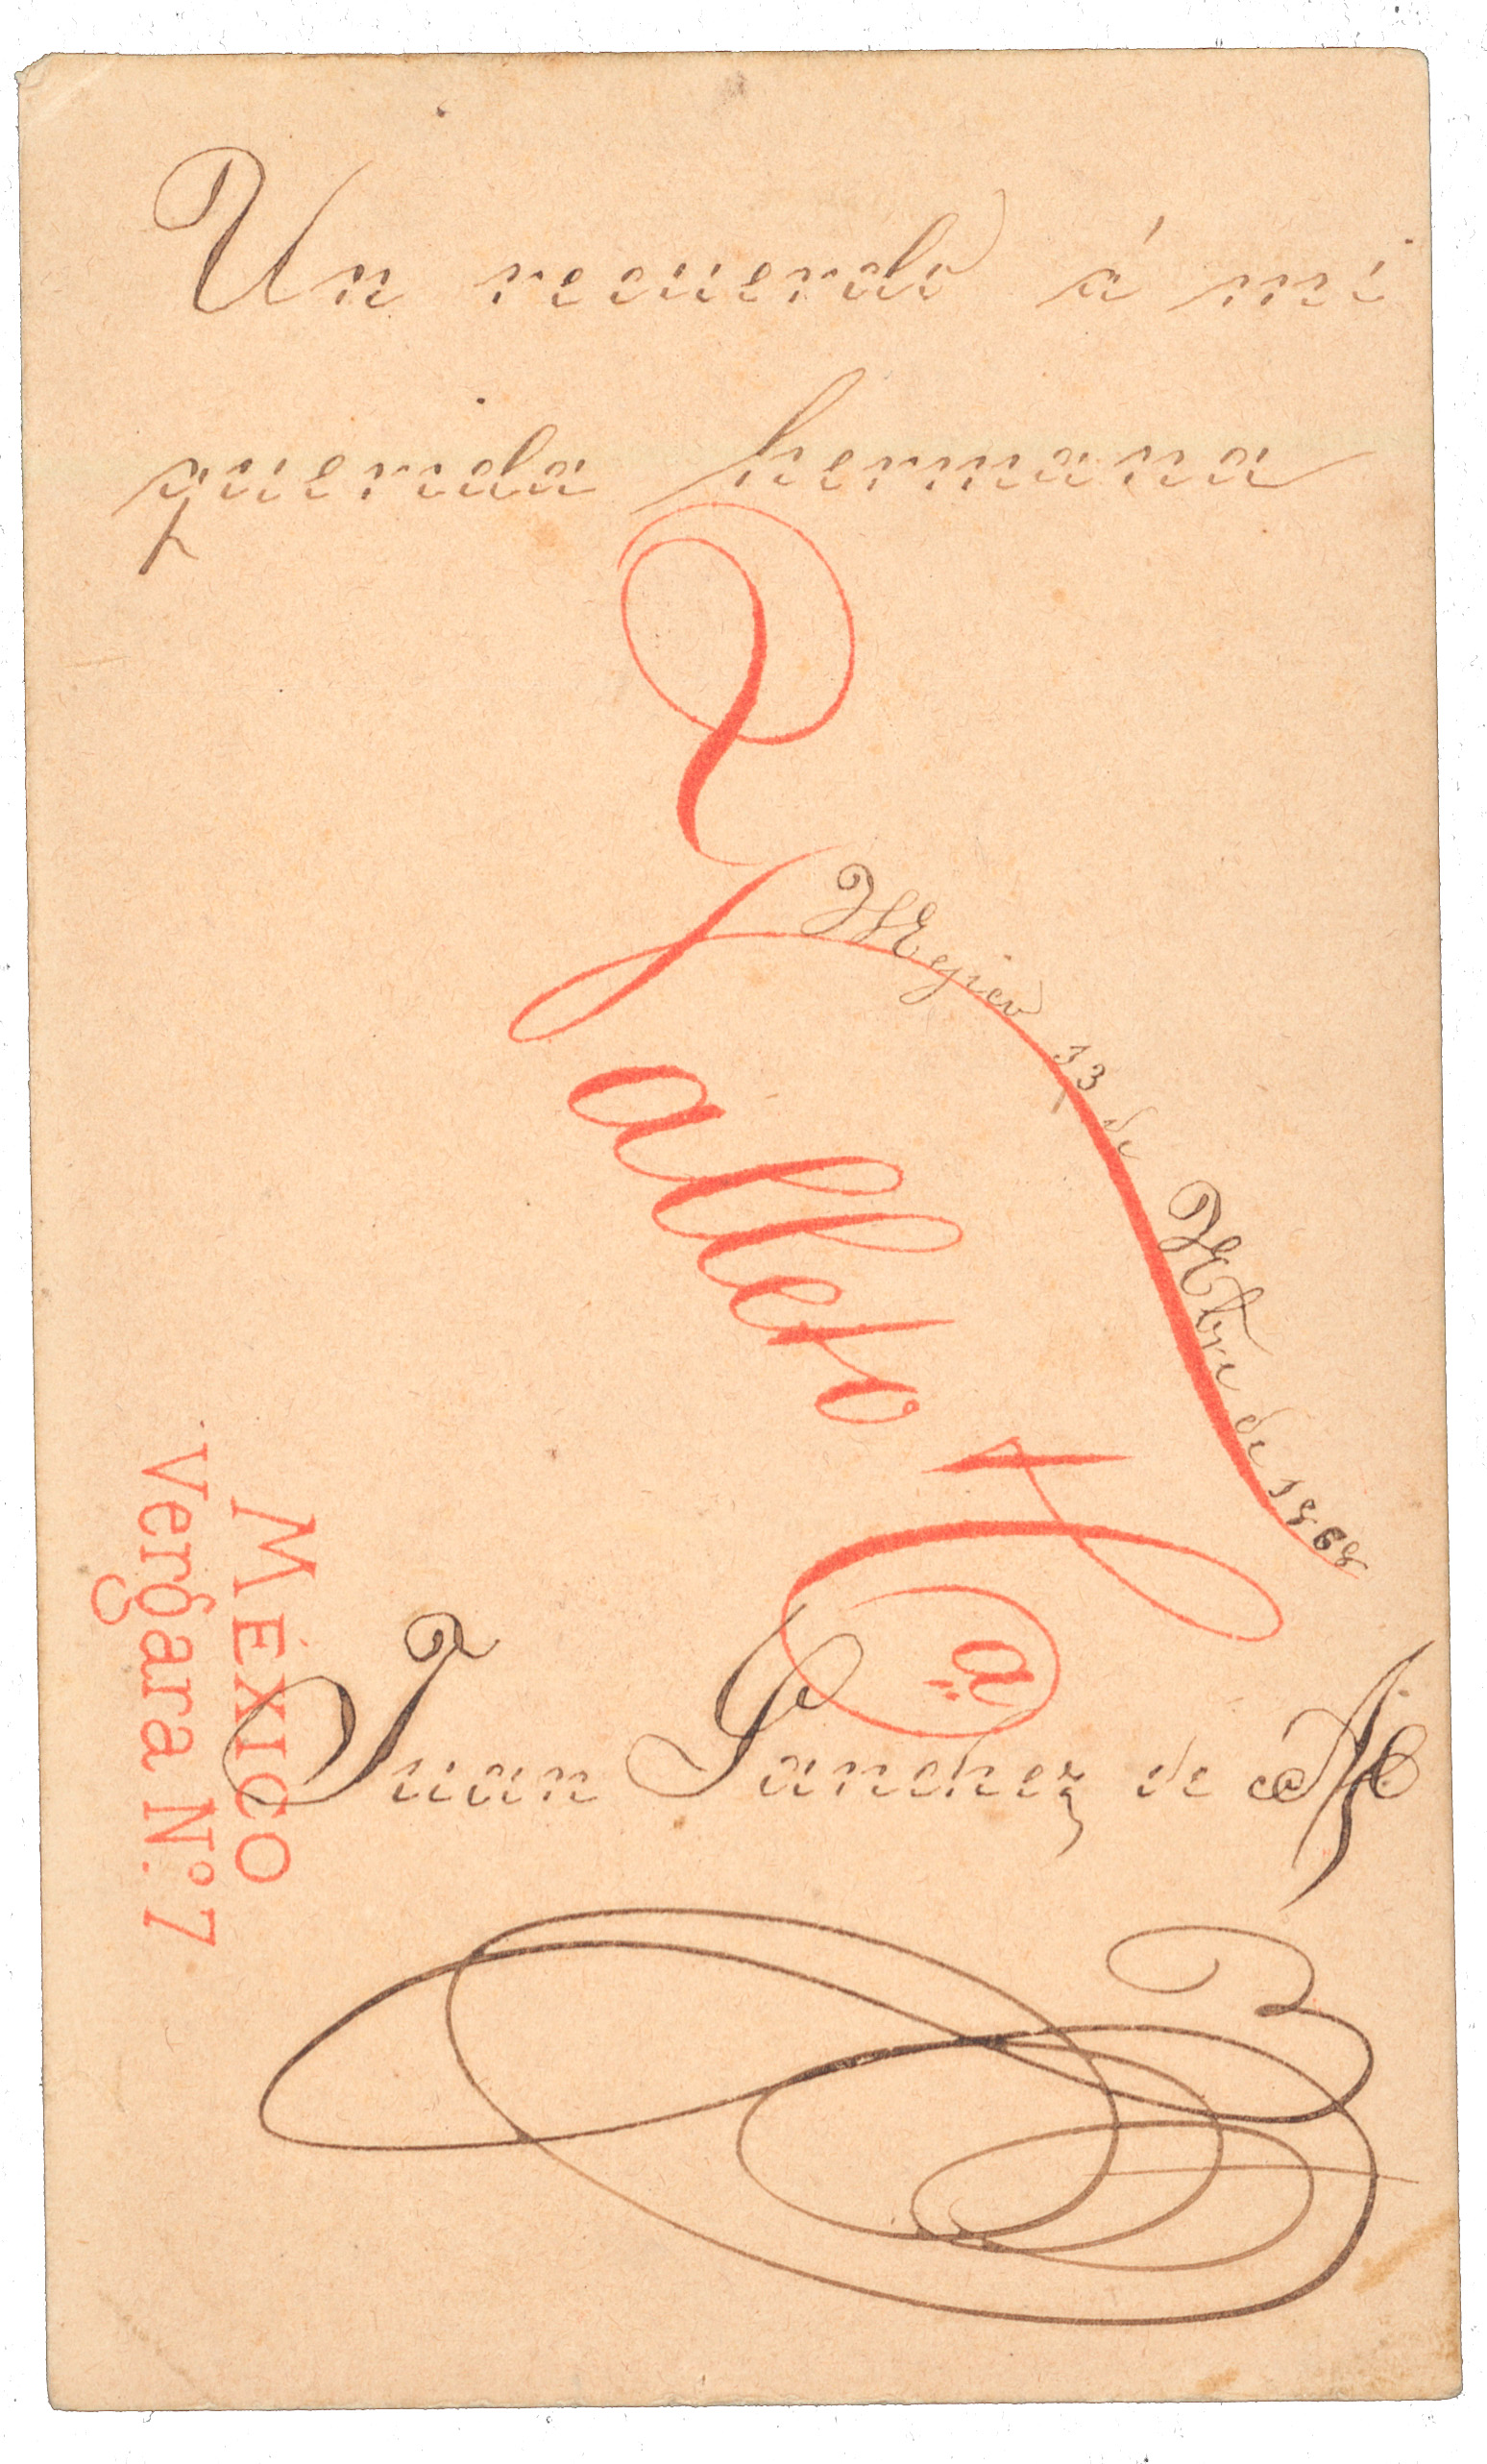 Un recuerdo á mi
querida hermana
Megico 13 de Nbre de 1868
Valleto y Cª
Juan Sanchez de
MÉXICO
Vergara Nº 7